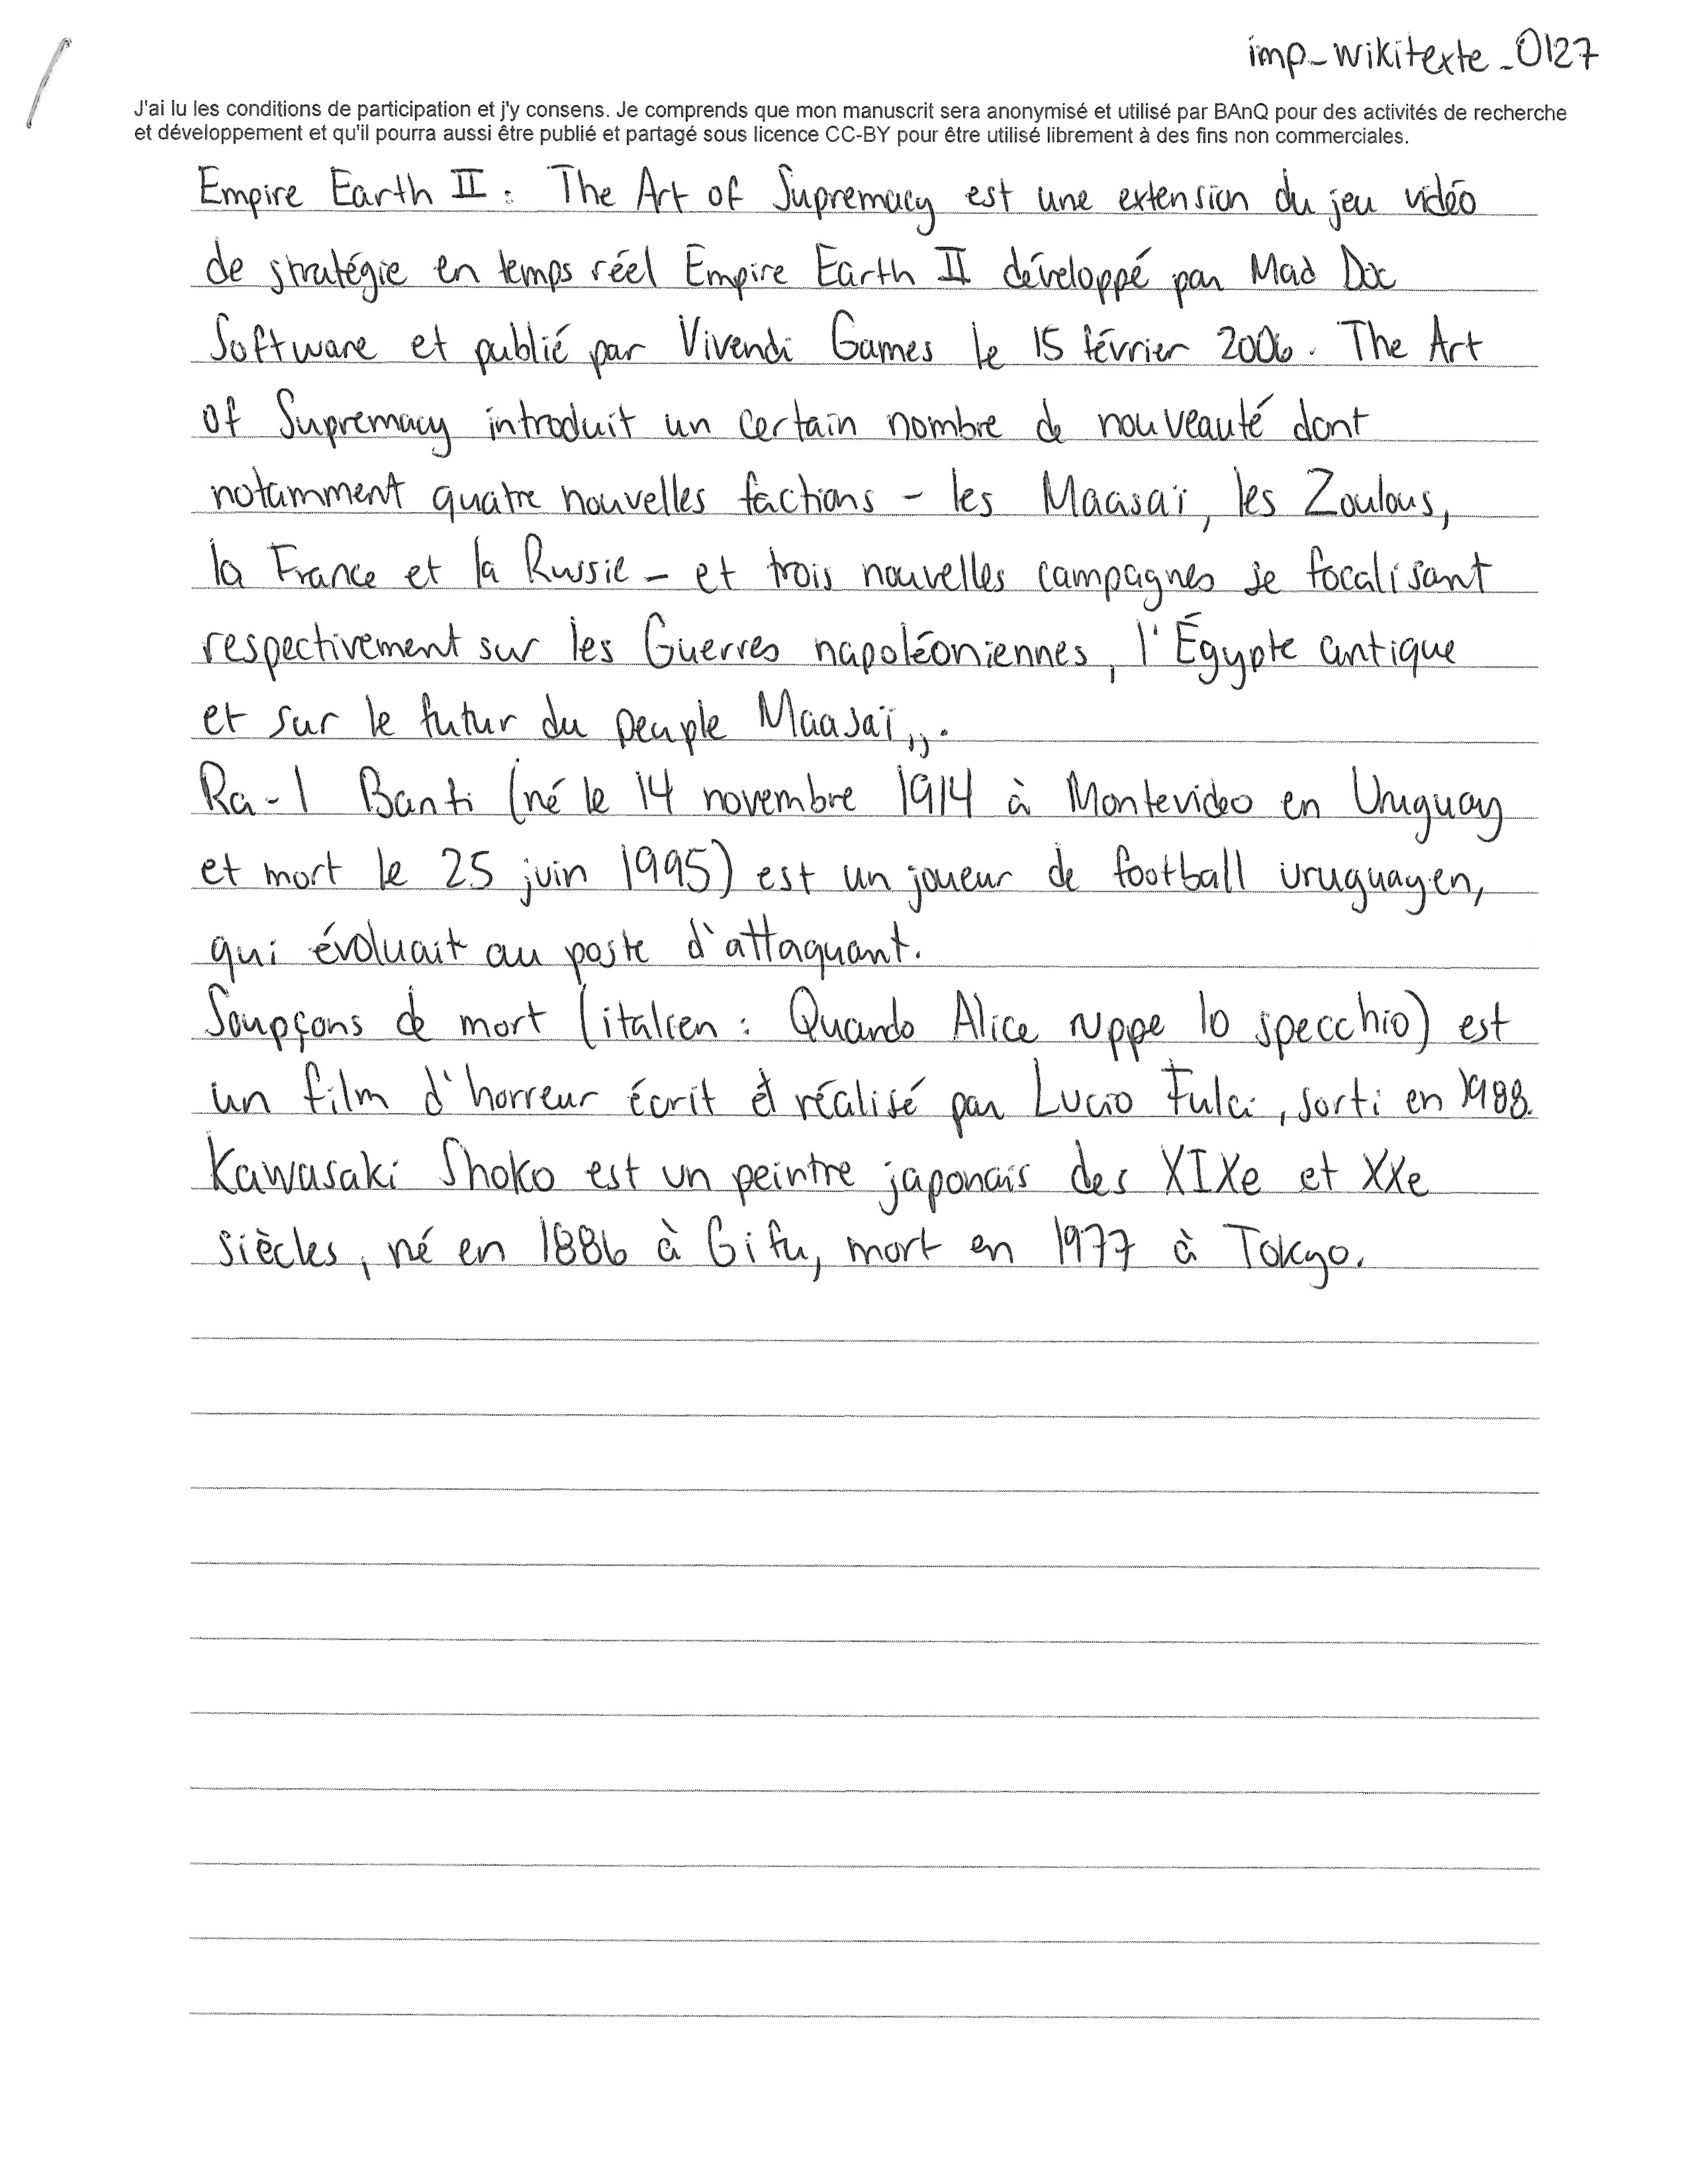 imp_wikitexte_0127
J'ai lu les conditions de participation et j'y consens. Je comprends que mon manuscrit sera anonymisé et utilisé par BAnQ pour des activités de recherche
et développement et qu'il pourra aussi être publié et partagé sous licence CC-BY pour être utilisé librement à des fins non commerciales.
Empire Earth II : The Art of Supremacy est une extension du jeu vidéo
de stratégie en temps réel Empire Earth II développé par Mad Doc
Software et publié par Vivendi Games le 15 février 2006. The Art
of Supremacy introduit un certain nombre de nouveauté dont
notamment quatre nouvelles factions - les Maasaï, les Zoulous,
la France et la Russie - et trois nouvelles campagnes se focalisant
respectivement sur les Guerres napoléoniennes, l'Égypte antique
et sur le futur du peuple Maasaï,,.
Ra-l Banti (né le 14 novembre 1914 à Montevideo en Uruguay
et mort le 25 juin 1995) est un joueur de football uruguayen,
qui évoluait au poste d'attaquant.
Soupçons de mort (italien : Quando Alice ruppe lo specchio) est
un film d'horreur écrit et réalisé par Lucio Fulci, sorti en 1988.
Kawasaki Shoko est un peintre japonais des XIXe et XXe
siècles, né en 1886 à Gifu, mort en 1977 à Tokyo.